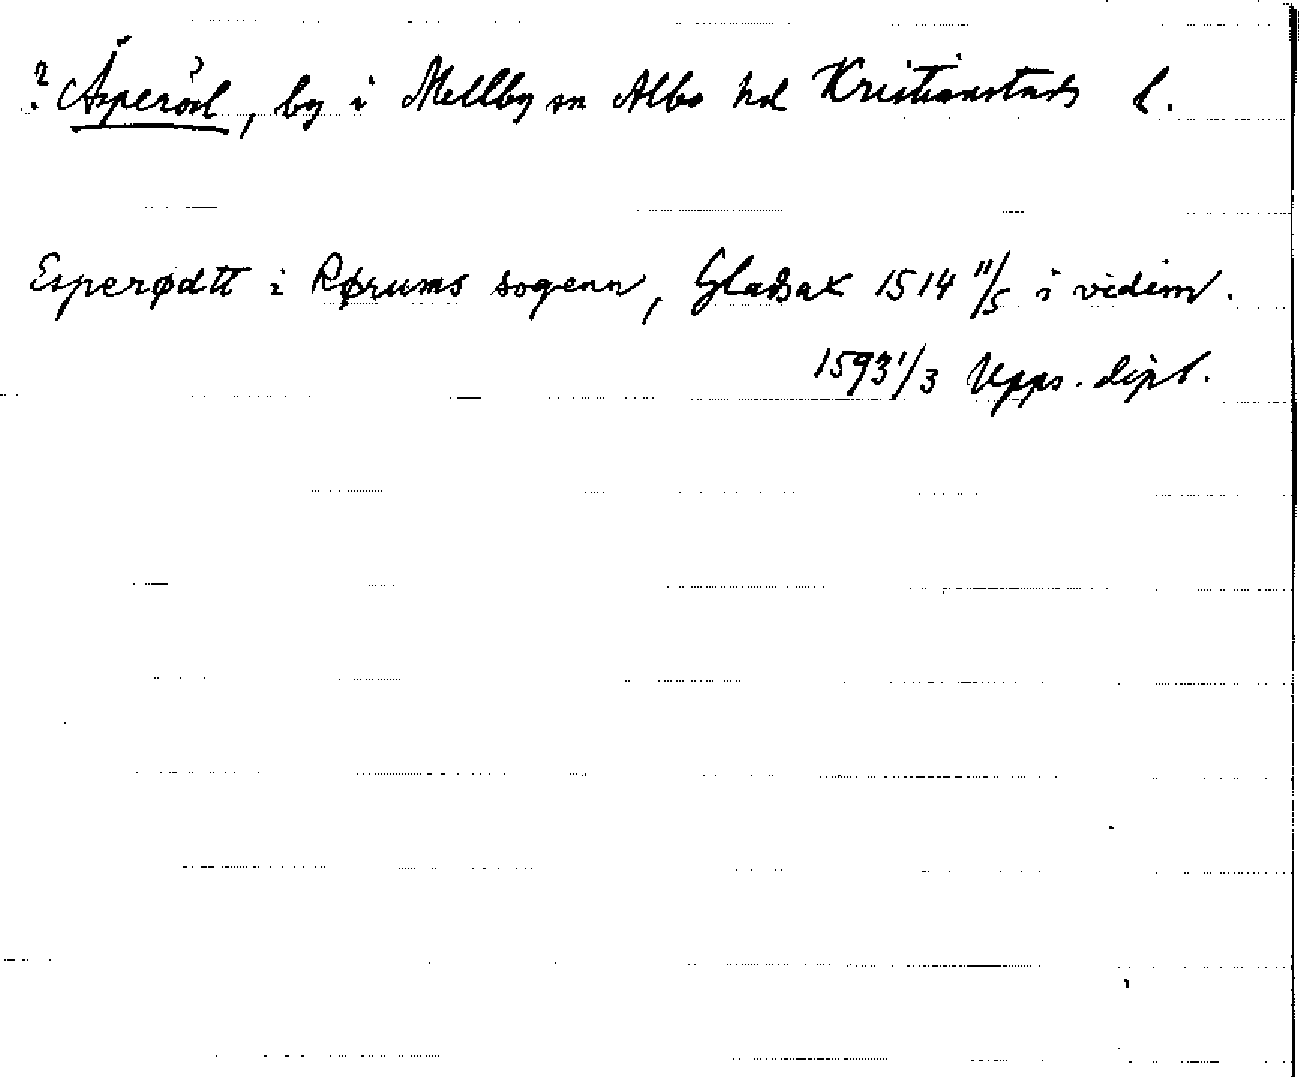 ? Äsperöd, by i Mellby sn Albo hd Kristianstads l.
Esperødtt i Rørums sogenn, Gladsax 1514 11/5 i vidim.
1593 1/3 Upps. dipl.